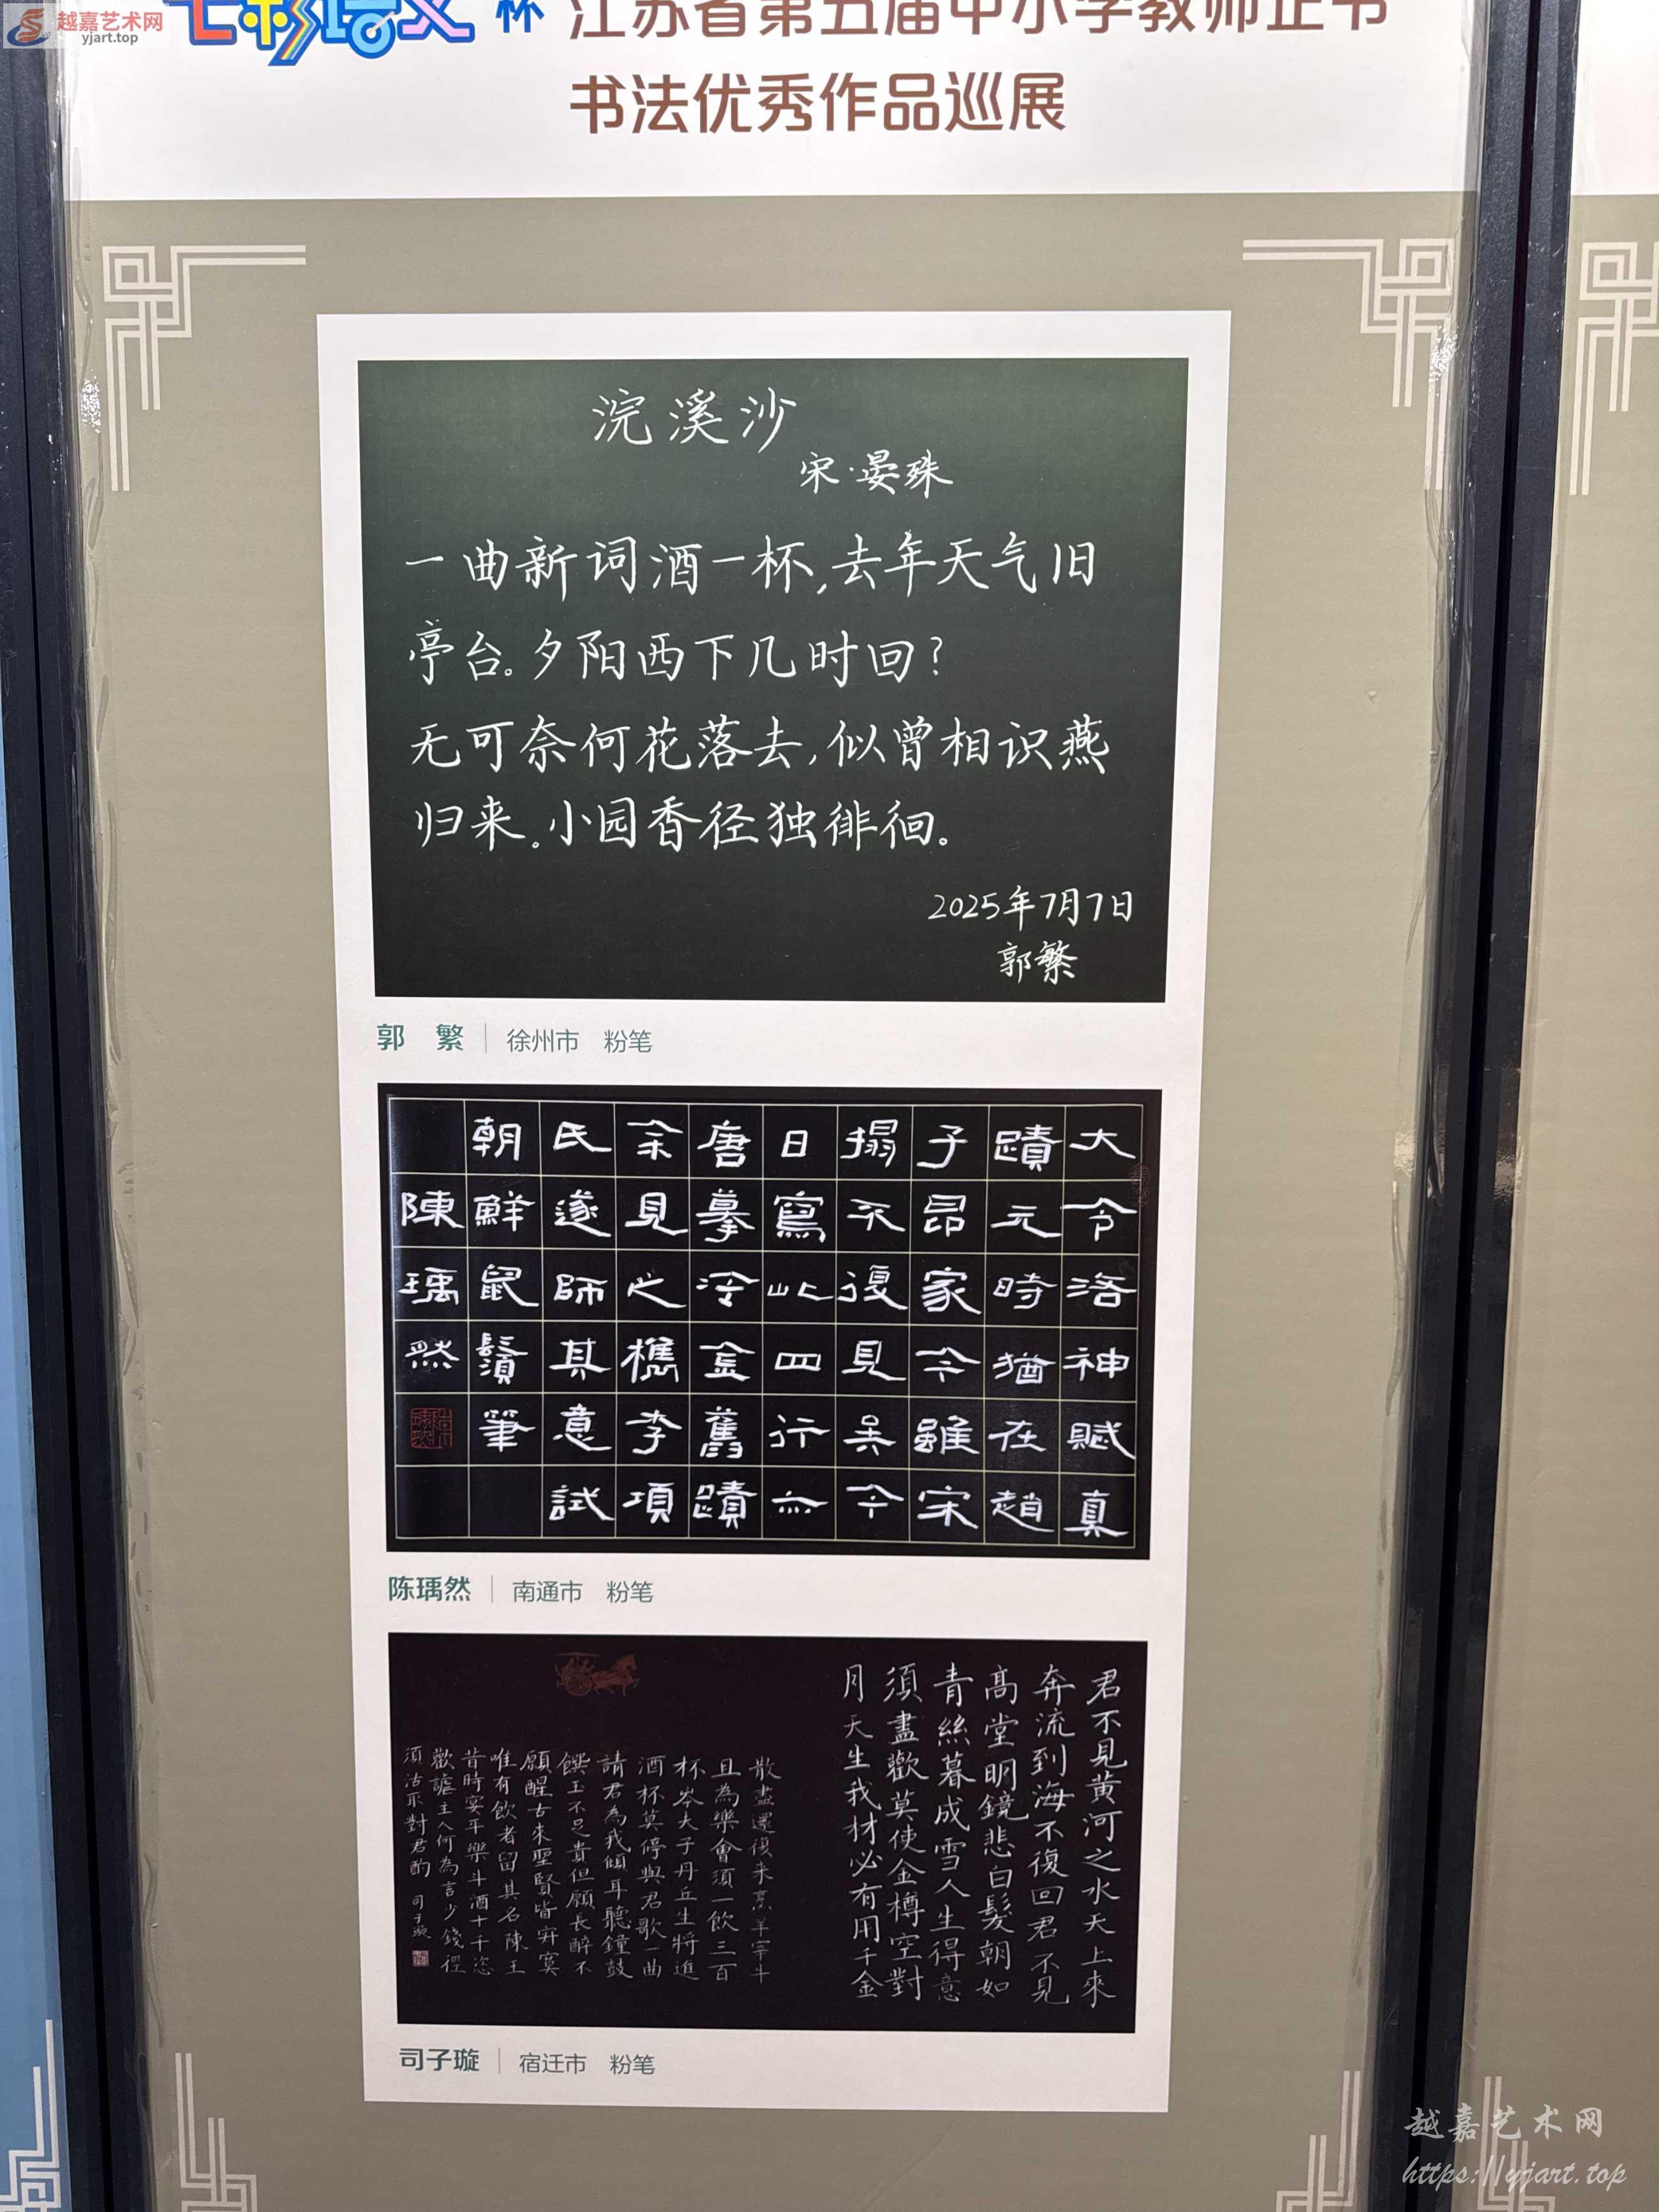 越嘉艺术网
yjart.top
七彩语文 杯 江苏省第五届中小学教师正书
书法优秀作品巡展
浣溪沙
宋·晏殊
一曲新词酒一杯,去年天气旧
亭台。夕阳西下几时回?
无可奈何花落去,似曾相识燕
归来。小园香径独徘徊。
2025年7月7日
郭繁
郭 繁 徐州市 粉笔
大令洛神賦真
蹟元時猶在趙
子昂家今雖宋
搨不復見矣今
日寫此四行亦
唐摹冷金舊蹟
余見之檇李項
氏遂師其意試
朝鮮鼠鬚筆
陳瑀然
陈瑀然 南通市 粉笔
君不見黄河之水天上來
奔流到海不復回君不見
高堂明鏡悲白髮朝如
青絲暮成雪人生得意
須盡歡莫使金樽空對
月天生我材必有用千金
散盡還復来烹羊宰牛
且為樂會須一飲三百
杯岑夫子丹丘生將進
酒杯莫停與君歌一曲
請君為我傾耳聽鐘鼓
饌玉不足貴但願長醉不
願醒古來聖賢皆寂寞
唯有飲者留其名陳王
昔時宴平樂斗酒十千恣
歡謔主人何為言少錢徑
須沽取對君酌 司子璇
司子璇 宿迁市 粉笔
越嘉艺术网
https://yjart.top